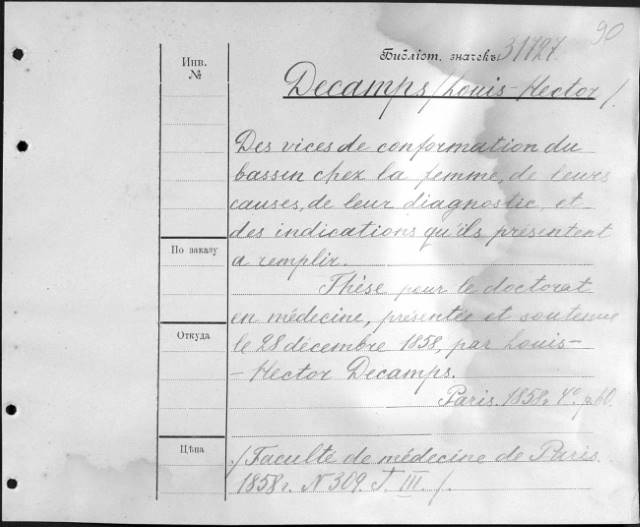 90
Библіот. значекъ 31727.
Инв.
№
Decamps /Louis-Hector/.
Des vices de conformation du
bassin chez la femme, de leurs
causes, de leur diagnostic, et
des indications qu'ils présentent
a remplir.
По заказу
Thèse pour le doctorat
en médecine, présentée et soutenue
Откуда
le 28 décembre 1858, par Louis-
- Hector Decamps.
Paris. 1858. 4º. p. 60.
Цѣна
/Faculte de médecine de Paris.
1858г. N 309. T. III. /.